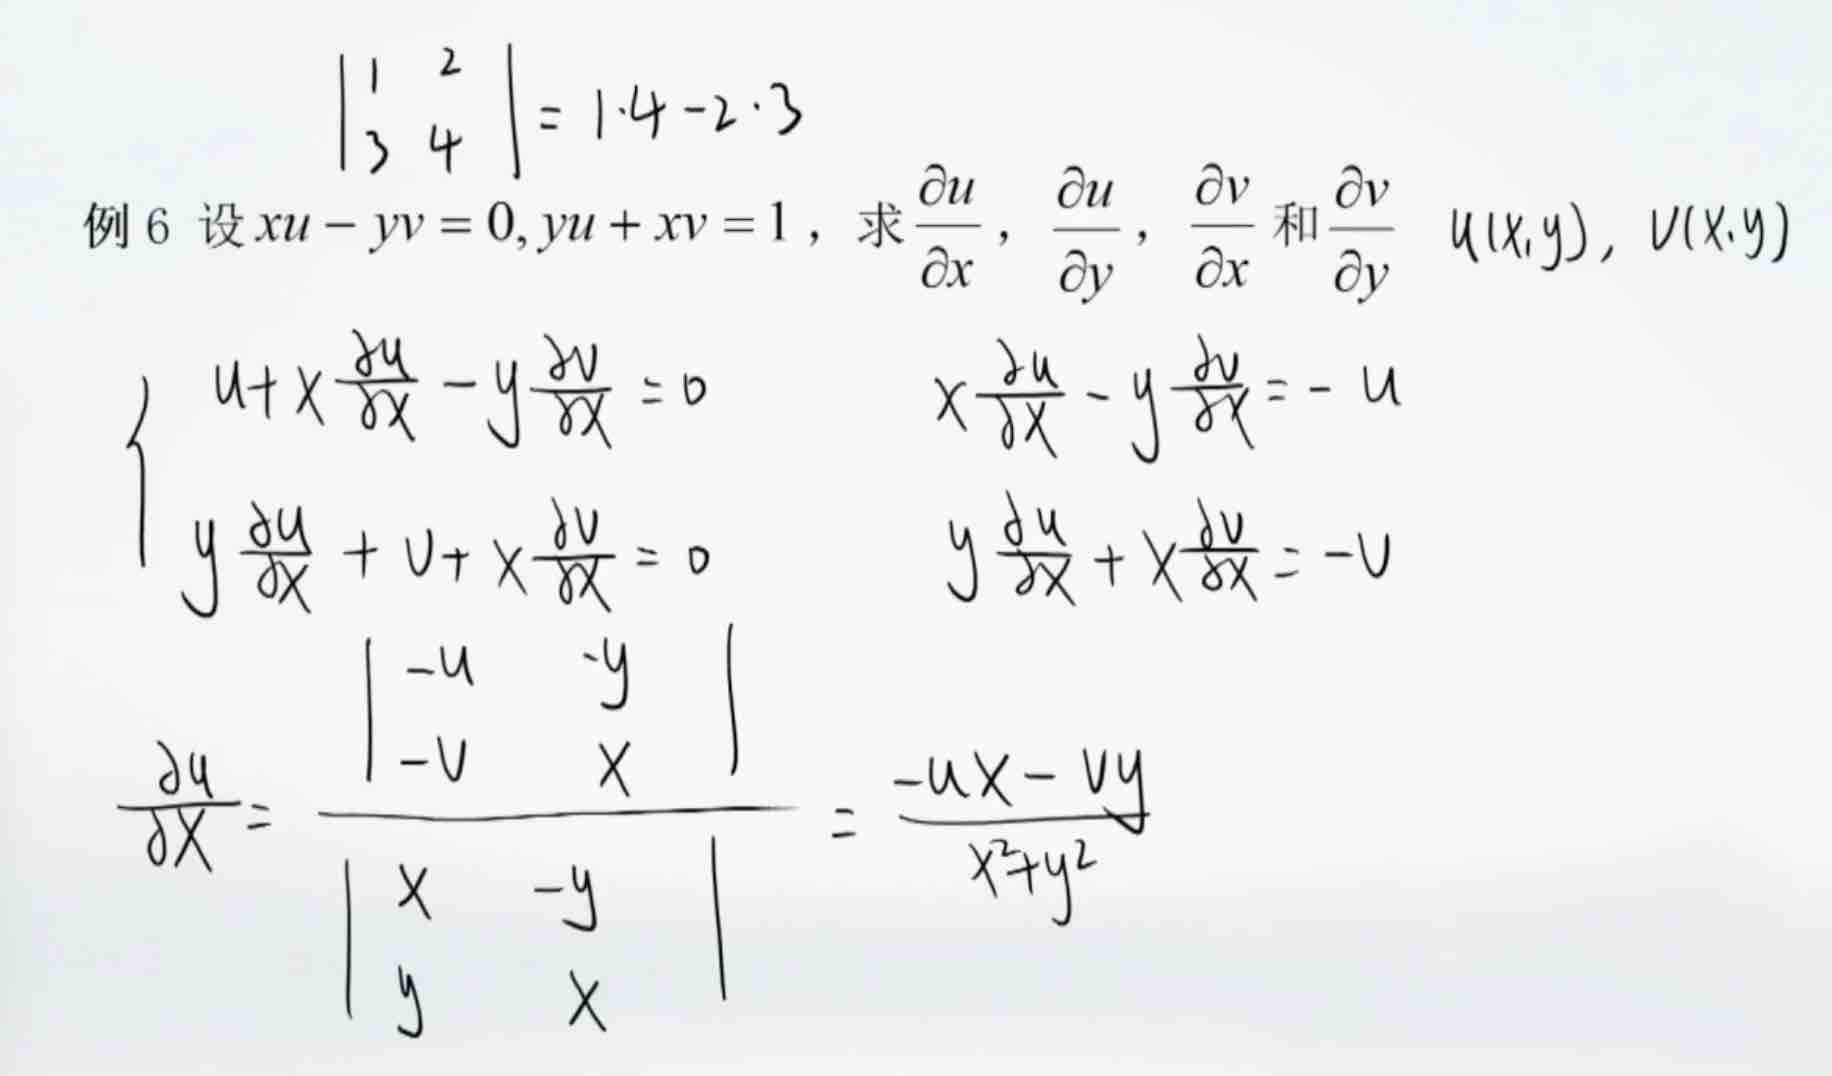 |1 2; 3 4| = 1·4-2·3
例 6 设 xu - yv = 0, yu + xv = 1，求 ∂u/∂x，∂u/∂y，∂v/∂x 和 ∂v/∂y u(x,y), v(x,y)
{ u + x ∂u/∂x - y ∂v/∂x = 0 x ∂u/∂x - y ∂v/∂x = -u
y ∂u/∂x + v + x ∂v/∂x = 0 y ∂u/∂x + x ∂v/∂x = -v
∂u/∂x = |-u -y; -v x| / |x -y; y x| = (-ux - vy)/(x²+y²)